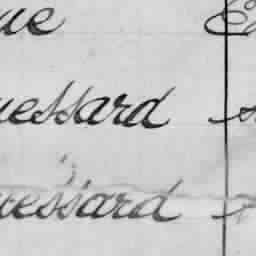 ue E
uessard
uessard